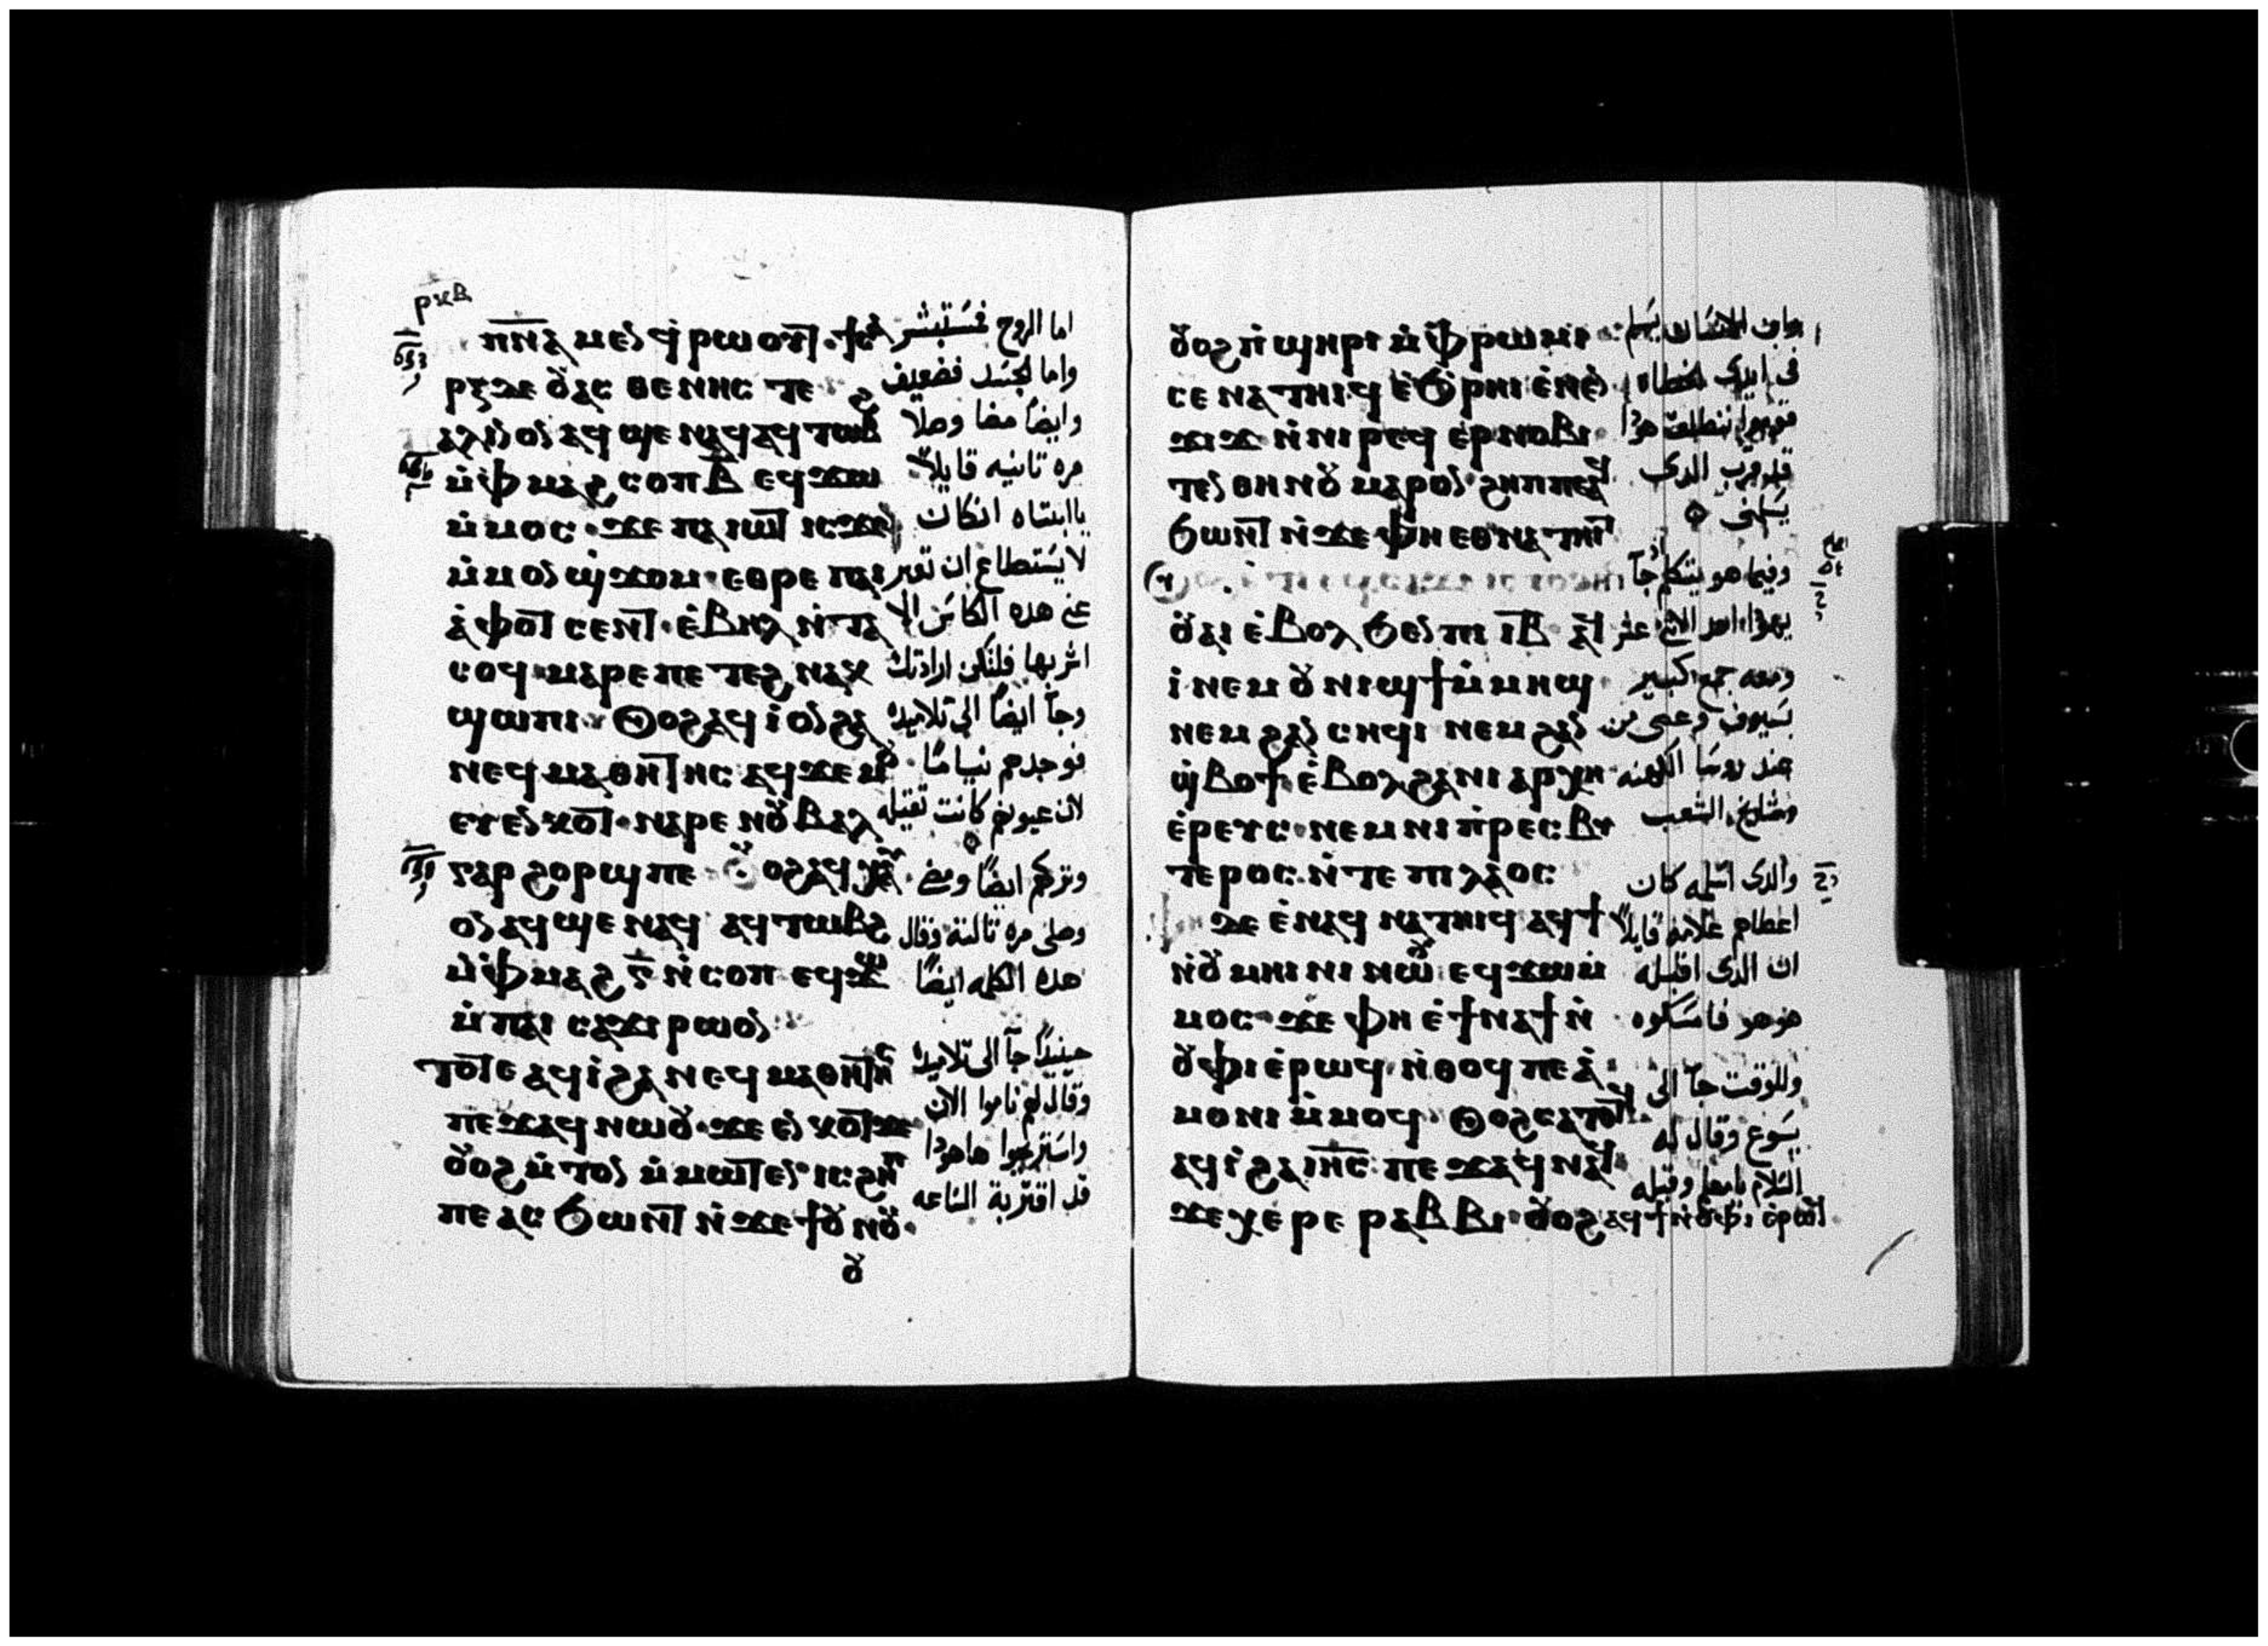 ⲣⲕⲃ
ⲡⲛⲁ ⲙⲉⲛ ϥⲣⲱⲟⲩⲧ ϯⲥⲁ
ⲣⲝ ⲇⲉ ⲟⲩⲁⲥⲑⲉⲛⲏⲥ ⲧⲉ
ⲡⲁⲗⲓⲛ ⲟⲛ ⲁϥϣⲉ ⲛⲁϥ ⲁϥⲧⲱⲃϩ
ⲙⲫⲙⲁϩ ⲥⲟⲡ ⲃ ⲉϥϫⲱ
ⲙⲙⲟⲥ ϫⲉ ⲡⲁⲓⲱⲧ ⲓⲥϫⲉ
ⲙⲙⲟⲛ ϣϫⲟⲙ ⲉⲑⲣⲉ ⲡⲁⲓ
ⲁⲫⲟⲧ ⲥⲉⲛⲧ ⲉⲃⲏⲗ ⲛⲧⲁ
ⲥⲟϥ ⲙⲁⲣⲉ ⲡⲉⲧⲉϩⲛⲁⲕ
ϣⲱⲡⲓ ⲟⲩⲟϩ ⲁϥⲓ ⲟⲛ ϩⲁ
ⲛⲉϥⲙⲁⲑⲏⲧⲏⲥ ⲁϥϫⲉⲙⲟⲩ
ⲉⲩⲉⲛⲕⲟⲧ ⲛⲁⲣⲉ ⲛⲟⲩⲃⲁⲗ
ⲅⲁⲣ ϩⲟⲣϣ ⲡⲉ ⲟⲩⲟϩ ⲁϥⲭⲁⲩ
ⲟⲛ ⲁϥϣⲉ ⲛⲁϥ ⲁϥⲧⲱⲃϩ
ⲙⲫⲙⲁϩ ⲅ ⲛⲥⲟⲡ ⲉϥϫⲱ
ⲙⲡⲁⲓ ⲥⲁϫⲓ ⲣⲱ ⲟⲛ
ⲧⲟⲧⲉ ⲁϥⲓ ϩⲁ ⲛⲉϥⲙⲁⲑⲏⲧⲏⲥ
ⲡⲉϫⲁϥ ⲛⲱⲟⲩ ϫⲉ ⲉⲛⲕⲟⲧ ϫⲉ
ⲟⲩⲟϩ ⲙⲧⲟⲛ ⲙⲙⲱⲧⲉⲛ ⲓⲥ ϩⲏ
ⲡⲡⲉ ⲁⲥϧⲱⲛⲧ ⲛϫⲉ ϯⲟⲩⲛⲟⲩ
ⲟⲩ
اما الروح فتستبشر
واما الجسد فضعيف
وايضا مضا وصلا
مره تانيه قايلا
يا ابتاه انكان
لا يستطاع ان تعبر
عني هده الكاس الا
اشربها فلتكن ارادتك
وجا ايضا الى تلاميده
فوجدهم نياما
لان عيونهم كانت تقيله
وتركهم ايضا ومضى
وصلى مره تالته وقال
هده الكلمه ايضا
حينيدا جا الى تلاميده
وقال لهم ناموا الان
واستريحوا هاهودا
قد اقتربة الساعه
ⲟⲩⲟϩ ⲡϣⲏⲣⲓ ⲙⲫⲣⲱⲙⲓ
ⲥⲉⲛⲁⲧⲏⲓϥ ⲉϧⲣⲏⲓ ⲉⲛⲉⲛ
ϫⲓϫ ⲛⲛⲓⲣⲉϥⲉⲣⲛⲟⲃⲓ
ⲧⲉⲛ ⲑⲏⲛⲟⲩ ⲙⲁⲣⲟⲛ ϩⲏⲡⲡⲉ ⲁϥ
ϧⲱⲛⲧ ⲛϫⲉ ⲫⲏ ⲉⲑⲛⲁⲧⲏⲓⲧ
ⲟⲩⲁⲓ ⲉⲃⲟⲗ ϧⲉⲛ ⲡⲓ ⲓⲃ ⲁϥ
ⲓ ⲛⲉⲙ ⲟⲩⲛⲓϣϯ ⲙⲙⲏϣ
ⲛⲉⲙ ϩⲁⲛ ⲥⲏϥⲓ ⲛⲉⲙ ϩⲁⲛ
ϣⲃⲟϯ ⲉⲃⲟⲗ ϩⲁ ⲛⲓⲁⲣⲭⲏ
ⲉⲣⲉⲩⲥ ⲛⲉⲙ ⲛⲓⲡⲣⲉⲥⲃⲩ
ⲧⲉⲣⲟⲥ ⲛⲧⲉ ⲡⲓⲗⲁⲟⲥ
ϫⲉ ⲉⲛⲁϥ ⲛⲁⲧⲏⲓϥ ⲁϥϯ
ⲛⲟⲩⲙⲏⲓⲛⲓ ⲛⲱⲟⲩ ⲉϥϫⲱ ⲙ
ⲙⲟⲥ ϫⲉ ⲫⲏ ⲉϯⲛⲁϯ ⲛ
ⲟⲩⲫⲓ ⲉⲣⲱϥ ⲛⲑⲟϥ ⲡⲉ ⲁ
ⲙⲟⲛⲓ ⲙⲙⲟϥ ⲟⲩⲟϩ ⲥⲁⲧⲟⲧϥ
ⲁϥⲓ ϩⲁ ⲓⲏⲥ ⲡⲉϫⲁϥ ⲛⲁϥ
ϫⲉ ⲭⲉⲣⲉ ⲣⲁⲃⲃⲓ ⲟⲩⲟϩ ⲁϥϯ ⲛⲟⲩⲫⲓ ⲉⲣⲱϥ
وابن الانسان يسلم
في ايدي الخطاه
قوموا ننطلق هودا
قد قرب الدي
يسلمني
وفيما هو يتكلم جا
يهودا احد الاتني عشر
ومعه جمع كبير
بسيوف وعصي من
عند روسا الكهنه
ومشايخ الشعب
والدي اسلمه كان
اعطاهم علامه قايلا
ان الدي اقبله
هو هو فامسكوه
وللوقت جا الى
يسوع وقال له
السلام يا معلم وقبله